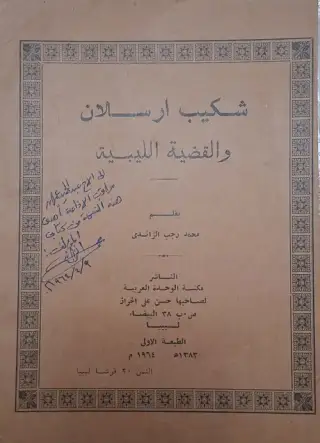 شكيب ارسلان
والقضية الليبية
بقلم
محمد رجب الزائدي
الناشر
مكتبة الوحدة العربية
لصاحبها حسن علي
ص.ب ٣٨ البيضاء
ليبيا
الطبعة الاولى
١٣٨٣ه ١٩٦٤ م
الثمن ٢٠ قرشا ليبيا
الى الاخ
هذه النسخة من كتابي